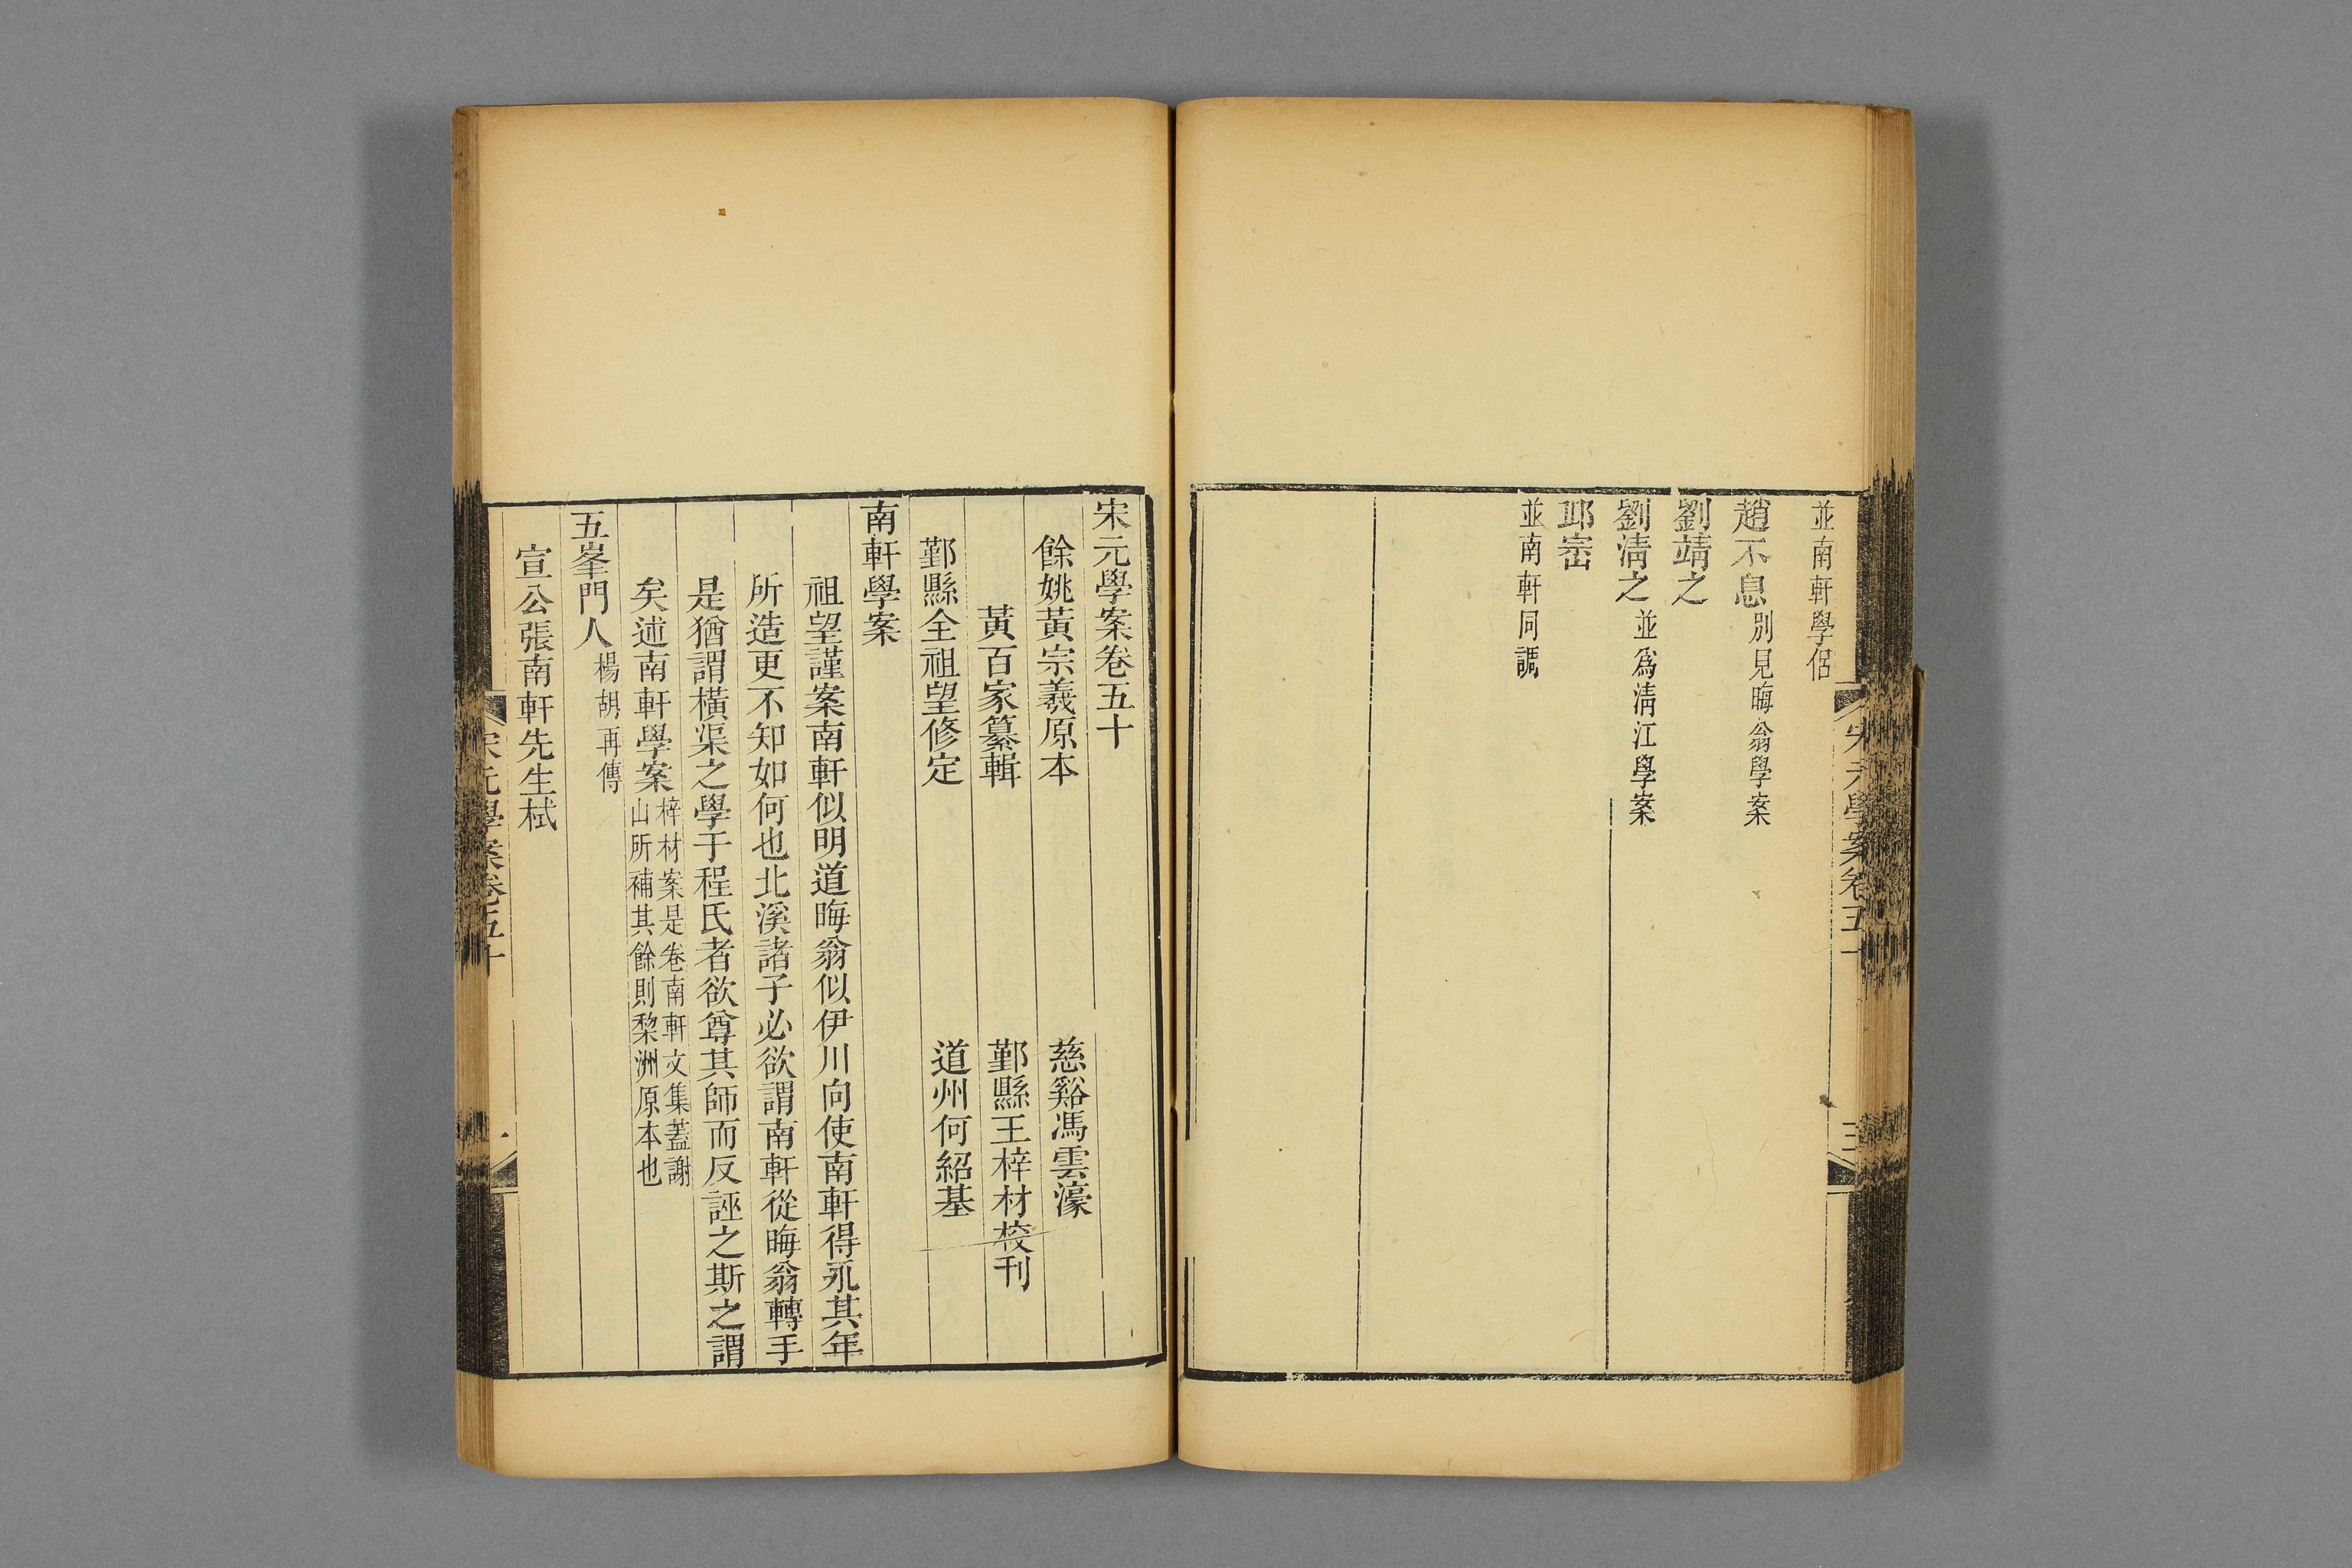 並南軒學侶
趙不息別見晦翁學案
劉靖之
劉淸之並爲淸江學案
邱崈
並南軒同調
宋元學案卷五十
餘姚黃宗羲原本 慈谿馮雲濠
黃百家纂輯 鄞縣王梓材校刊
鄞縣全祖望修定 道州何紹基
南軒學案
祖望謹案南軒似明道晦翁似伊川向使南軒得永其年
所造更不知如何也北溪諸子必欲謂南軒從晦翁轉手
是猶謂橫渠之學于程氏者欲尊其師而反誣之斯之謂
矣述南軒學案梓材案是卷南軒文集蓋謝山所補其餘則棃洲原本也
五峯門人楊胡再傳
宣公張南軒先生栻
宋元學案卷五十